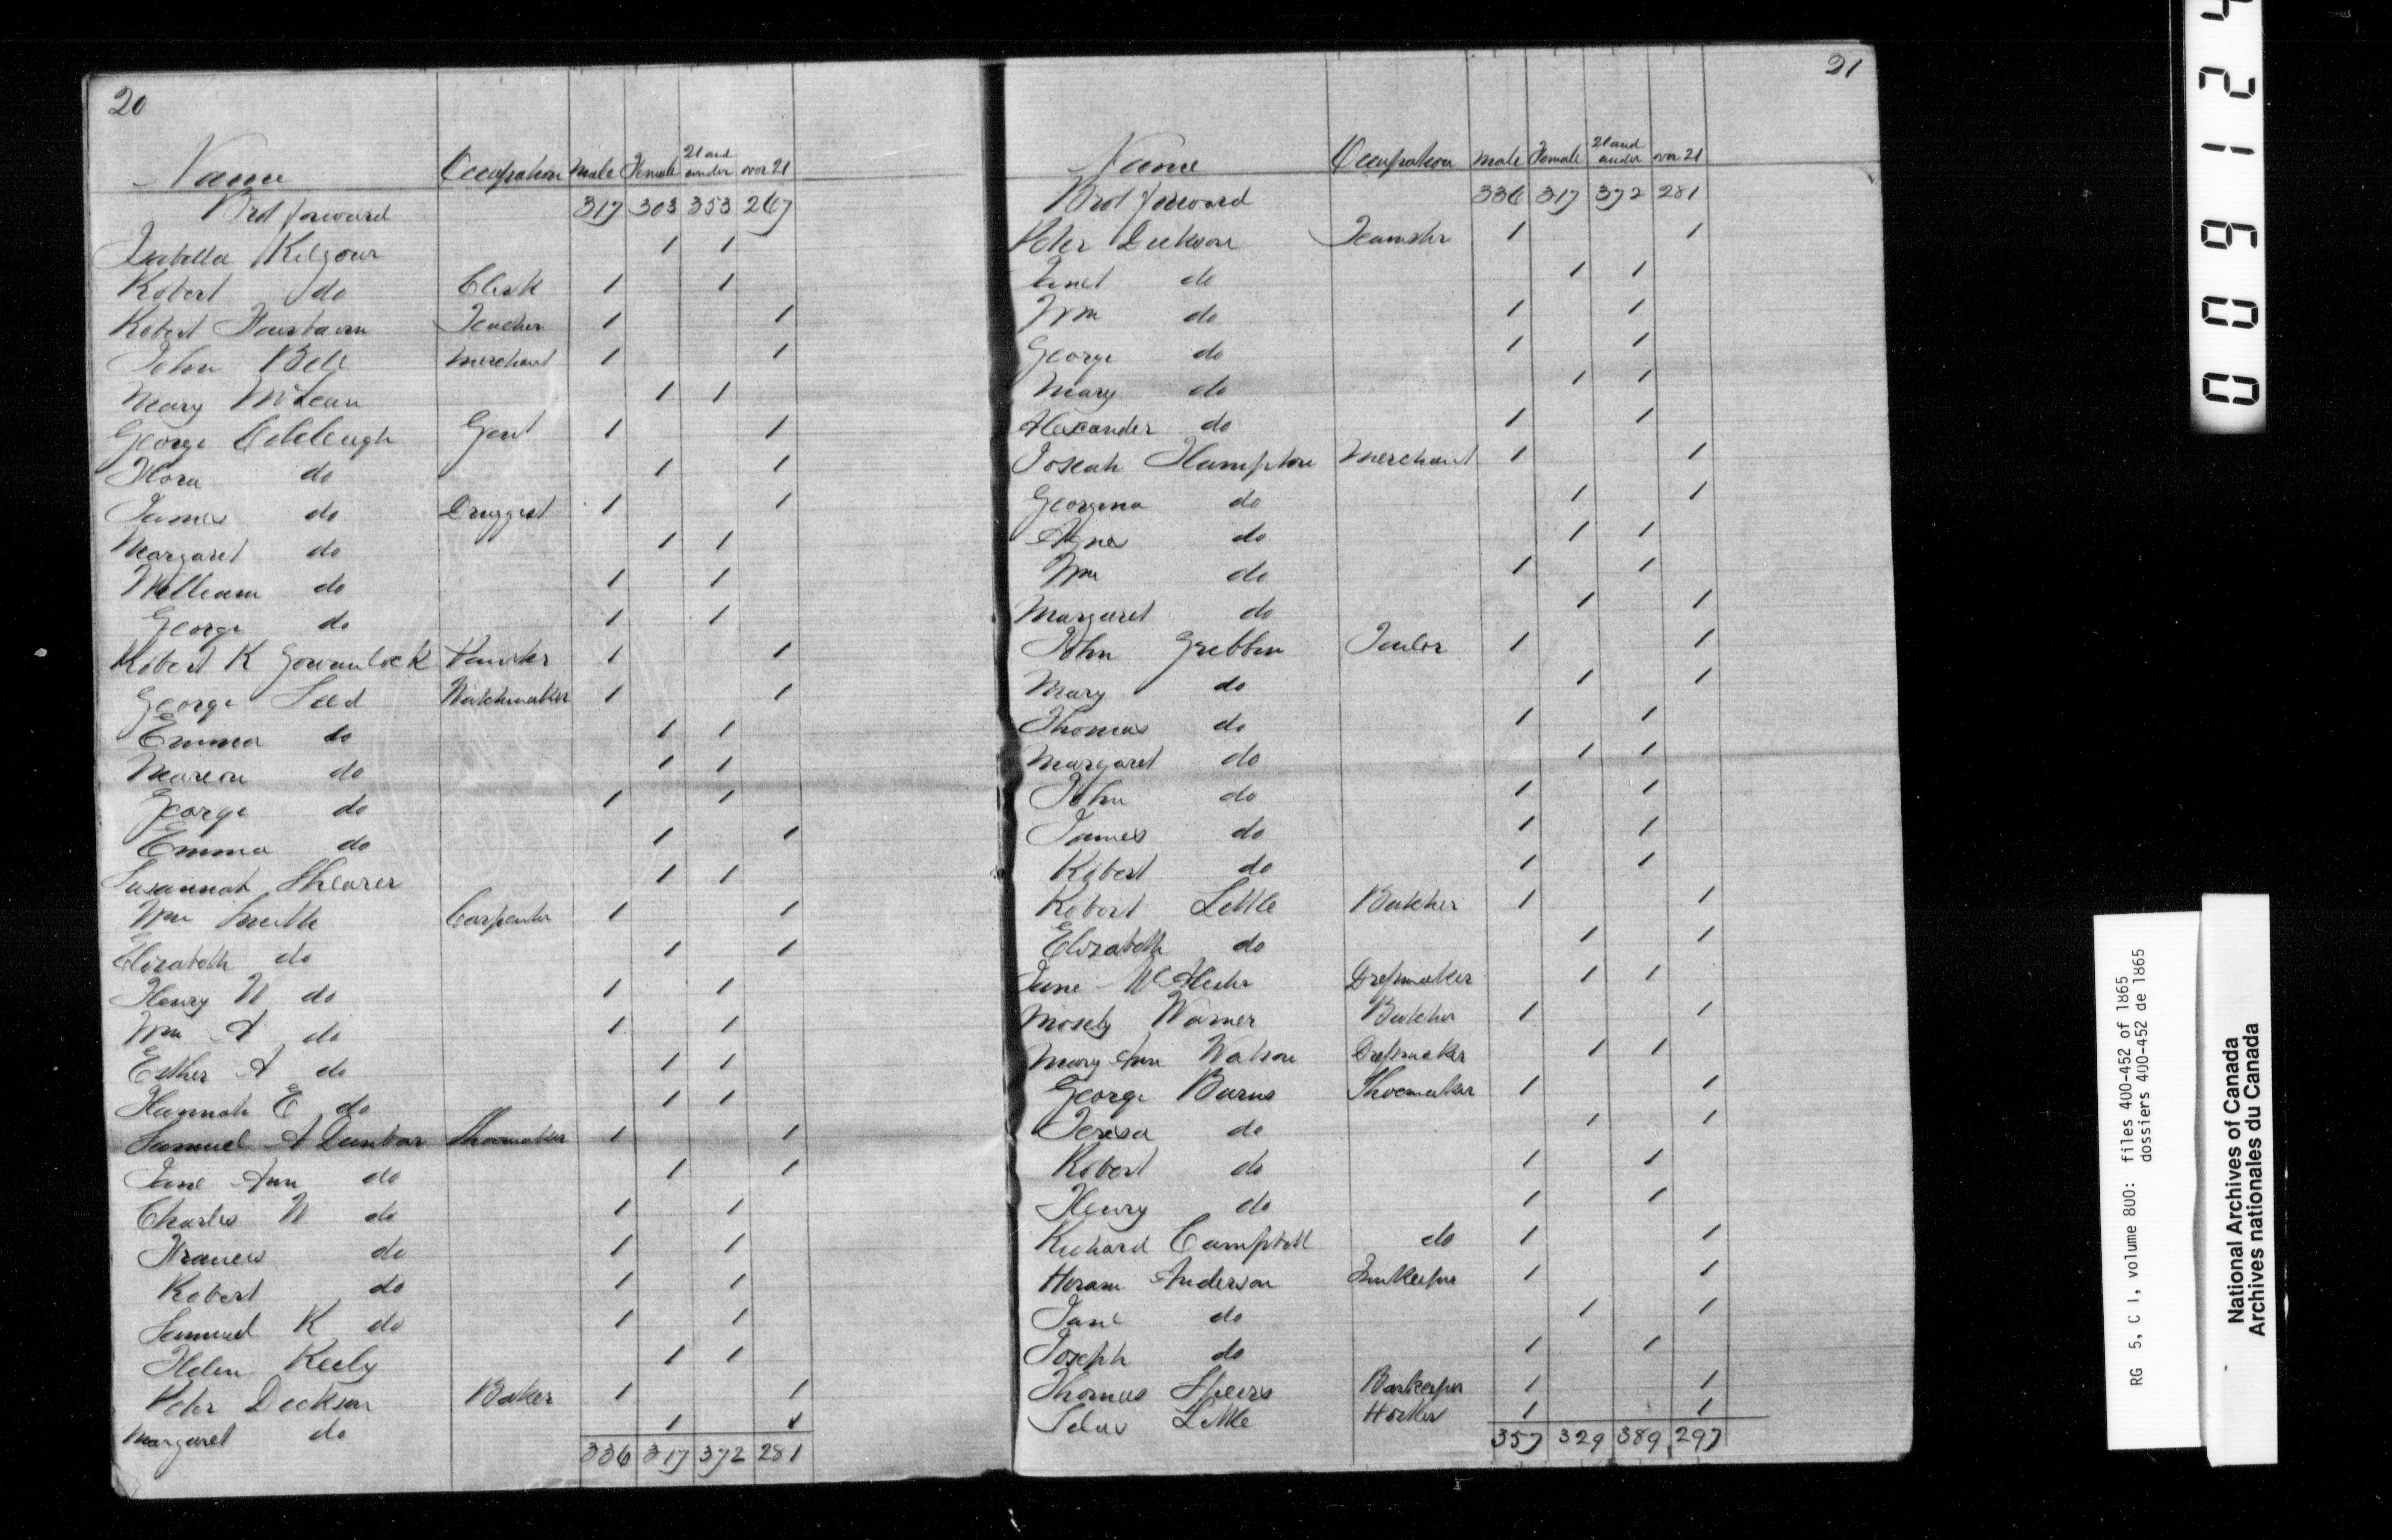 20
Name Occupation Male Female 21 and under over 21
Brot forward 317 303 353 267
Isabella Kilgour 1 1
Robert do Clerk 1 1
Robert Fairbairn Teacher 1 1
John Bell Merchant 1 1
Mary McLean 1 1
George Colcleugh Gent 1 1
Flora do 1 1
James do Druggist 1 1
Margaret do 1 1
William do 1 1
George do 1 1
Robert K Gowanlock 1 1
George Seed Watchmaker 1 1
Emma do 1 1
Marion do 1 1
George do 1 1
Emma do 1 1
Susannah Shearer 1 1
Wm Smith Carpenter 1 1
Elizabeth do 1 1
Henry W do 1 1
Wm A do 1 1
Esther A do 1 1
Hannah E do 1 1
Samuel A Dunbar Shoemaker 1 1
Jane Ann do 1 1
Charles W do 1 1
Francis do 1 1
Robert do 1 1
Samuel K do 1 1
Helen Keely 1 1
Peter Dickson Baker 1 1
Margaret do 1 1
336 317 372 281
21
Name Occupation Male Female 21 and under over 21
Brot forward 336 317 372 281
Peter Dickson Teamster 1 1
Janet do 1 1
Wm do 1 1
George do 1 1
Mary do 1 1
Alexander do 1 1
Josiah Hampton Merchant 1 1
Georgina do 1 1
Agnes do 1 1
Wm do 1 1
Margaret do 1 1
John Gribbin Tailor 1 1
Mary do 1 1
Thomas do 1 1
Margaret do 1 1
John do 1 1
James do 1 1
Robert do 1 1
Robert Little Butcher 1 1
Elizabeth do 1 1
Jane Dressmaker 1 1
Mosely Warner Butcher 1 1
Mary Ann Watson Dressmaker 1 1
George Burns Shoemaker 1 1
Teresa do 1 1
Robert do 1 1
Henry do 1 1
Richard Campbell do 1 1
Hiram Anderson Innkeeper 1 1
Jane do 1 1
Joseph do 1 1
Thomas Speirs Barkeeper 1 1
Silas Little Hostler 1 1
357 329 389 297
009124
RG 5, C 1, volume 800: files 400-452 of 1865
dossiers 400-452 de 1865
National Archives of Canada
Archives nationales du Canada